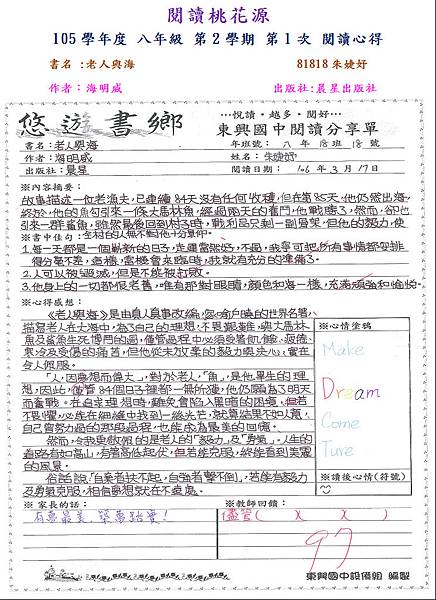 閱讀桃花源
105 學年度 八年級 第 2 學期 第 1 次 閱讀心得
書名:老人與海 81818 朱婕妤
作者:海明威 出版社:晨星出版社
悠遊書鄉
…悅讀‧越多‧閱好…
東興國中閱讀分享單
書名:老人與海 年班號:八年18班18號
作者:海明威 姓名:朱婕妤
出版社:晨星 閱讀日期:106年3月17日
※內容摘要:
故事描述一位老漁夫,已連續84天沒有任何收穫,但在第85天,他仍然出海,
終於,他的魚勾引來一條大馬林魚,經過兩天的奮鬥,他戰勝了,然而,卻也
引來一群鯊魚,雖然最後回到村子時,戰利品只剩一副骨架,但他的毅力,使
※書中佳句:全村的人無不對他十分景仰。
1.每一天都是一個嶄新的日子,走運當然好,不過,我寧可把所有事情都安排
得分毫不差,這樣,當機會來臨時,我就有充分的準備了。
2.人可以被毀滅,但是不能被打敗。
3.他身上的一切都很老舊,唯有那對眼睛,顏色和海一樣,充滿頑強和愉悅。
※心得感想:
《老人與海》是由真人真事改編,名
描寫老人在大海中,為了自己的理想,不畏艱難,與大馬林
魚及鯊魚生死搏鬥的過,儘管過程中必須受著飢餓、疲倦、
寒冷及受傷的痛苦,但他從未放棄的毅力與決心,實在
令人佩服。
「人,因夢想而偉大」,對於老人,「魚」,是他畢生的理
想,因此,儘管84個日子裡都一無所獲,他仍願為了明天
而奮戰。在追求理想時,難免會陷入黑暗的困境,但若
不畏懼,必能在細縫中找到一絲光芒,就算結果不如人意,
自己曾努力過的那段過程,也能成為最美的回憶。
然而,令我更敬佩的是老人的「毅力」及「勇氣」。人生的
道路有如高山,有著高低起伏,但若能克服,終能看到美麗
的風景。
俗話說:「自棄者扶不起,自強者擊不倒」,若能有毅力
及勇氣克服,相信夢想就在不遠處。
※心情塗鴉
Make
Dream
Come
Ture
※讀後心情(符號)
※家長的話: ※教師回饋:
有夢最美,築夢踏實! 儘管( )( )( )
97
東興國中設備組 編製